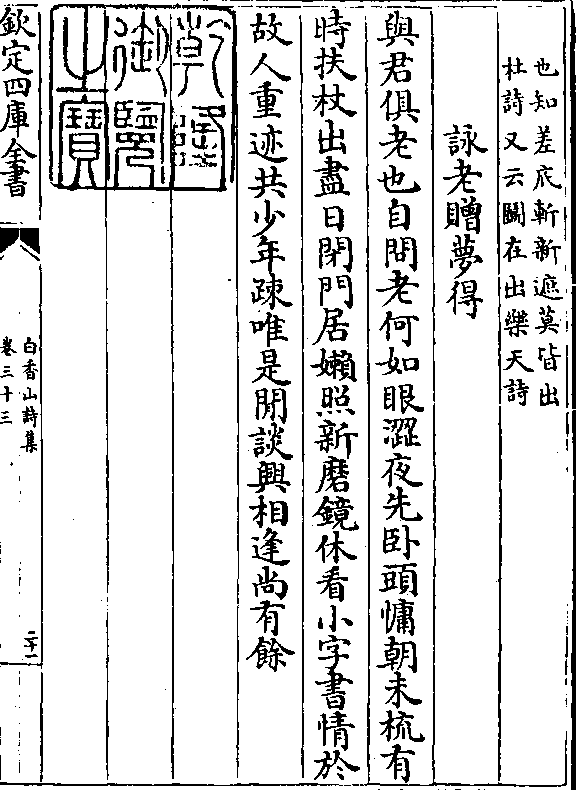 也知差底斬新遮莫皆出
杜詩又云闗在出樂天詩
詠老贈夢得
與君俱老也自問老何如眼澀夜先卧頭慵朝未梳有
時扶杖出盡日閉門居嬾照新磨鏡休看小字書情於
故人重迹共少年疎唯是閒談興相逢尚有餘
乾隆
御覽
之寶
欽定四庫全書
白香山詩集
卷三十三
二十一